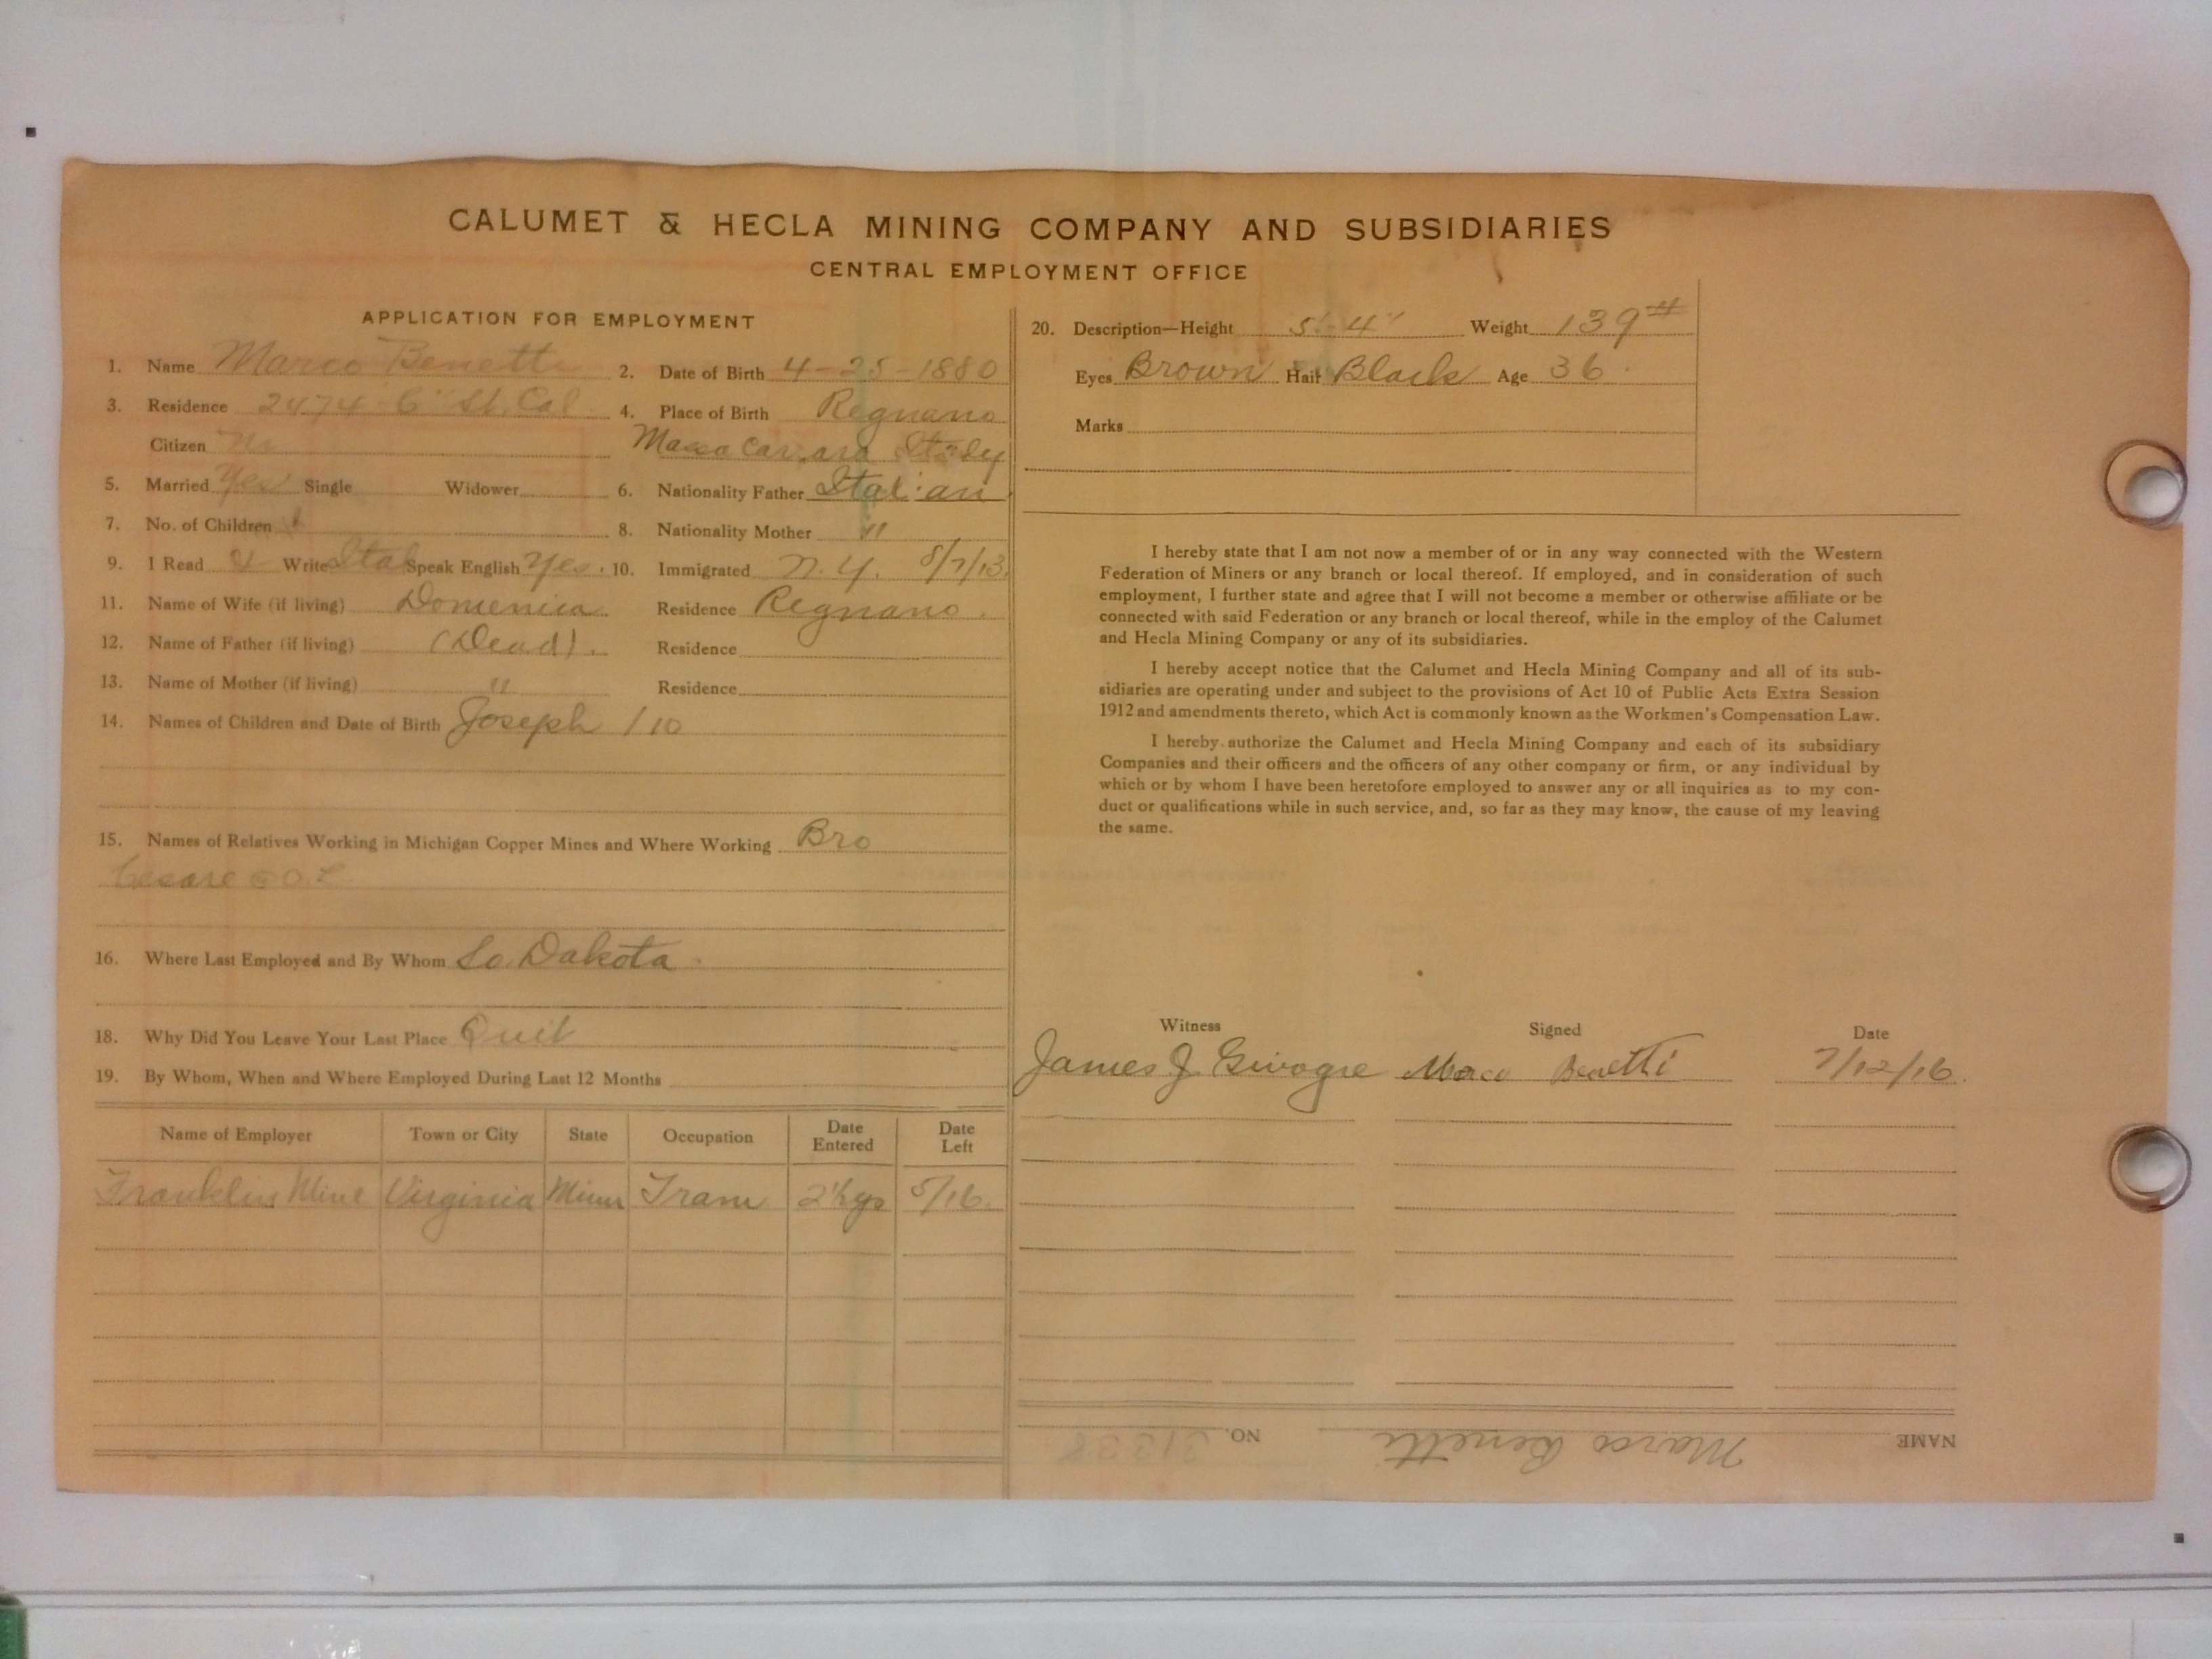 CALUMET & HECLA MINING COMPANY AND SUBSIDIARIES
CENTRAL EMPLOYMENT OFFICE
APPLICATION FOR EMPLOYMENT
1. Name Marco Benetti 2. Date of Birth 4-25-1880
3. Residence 2474-6" St. Cal 4. Place of Birth Regnano
Citizen Massa Carrara Italy
5. Married Yes Single Widower 6. Nationality Father Italian
7. No. of Children 8. Nationality Mother "
9. I Read & Write Ital Speak English Yes. 10. Immigrated N.Y. 8/7/13.
11. Name of Wife (if living) Domenica Residence Regnano.
12. Name of Father (if living) (Dead). Residence
13. Name of Mother (if living) " Residence
14. Names of Children and Date of Birth Joseph / 10
15. Names of Relatives Working in Michigan Copper Mines and Where Working Bro
Cesare
16. Where Last Employed and By Whom So. Dakota.
18. Why Did You Leave Your Last Place Quit
19. By Whom, When and Where Employed During Last 12 Months
Name of Employer Town or City State Occupation Date Entered Date Left
Franklin Mine Virginia Minn Tram 2½ys 5/16.
20. Description—Height 5'-4" Weight 139#
Eyes Brown Hair Black Age 36.
Marks
I hereby state that I am not now a member of or in any way connected with the Western
Federation of Miners or any branch or local thereof. If employed, and in consideration of such
employment, I further state and agree that I will not become a member or otherwise affiliate or be
connected with said Federation or any branch or local thereof, while in the employ of the Calumet
and Hecla Mining Company or any of its subsidiaries.
I hereby accept notice that the Calumet and Hecla Mining Company and all of its sub-
sidiaries are operating under and subject to the provisions of Act 10 of Public Acts Extra Session
1912 and amendments thereto, which Act is commonly known as the Workmen's Compensation Law.
I hereby authorize the Calumet and Hecla Mining Company and each of its subsidiary
Companies and their officers and the officers of any other company or firm, or any individual by
which or by whom I have been heretofore employed to answer any or all inquiries as to my con-
duct or qualifications while in such service, and, so far as they may know, the cause of my leaving
the same.
Witness Signed Date
James J. Givogre Marco Benetti 7/12/16.
NAME Marco Benetti NO. 31338